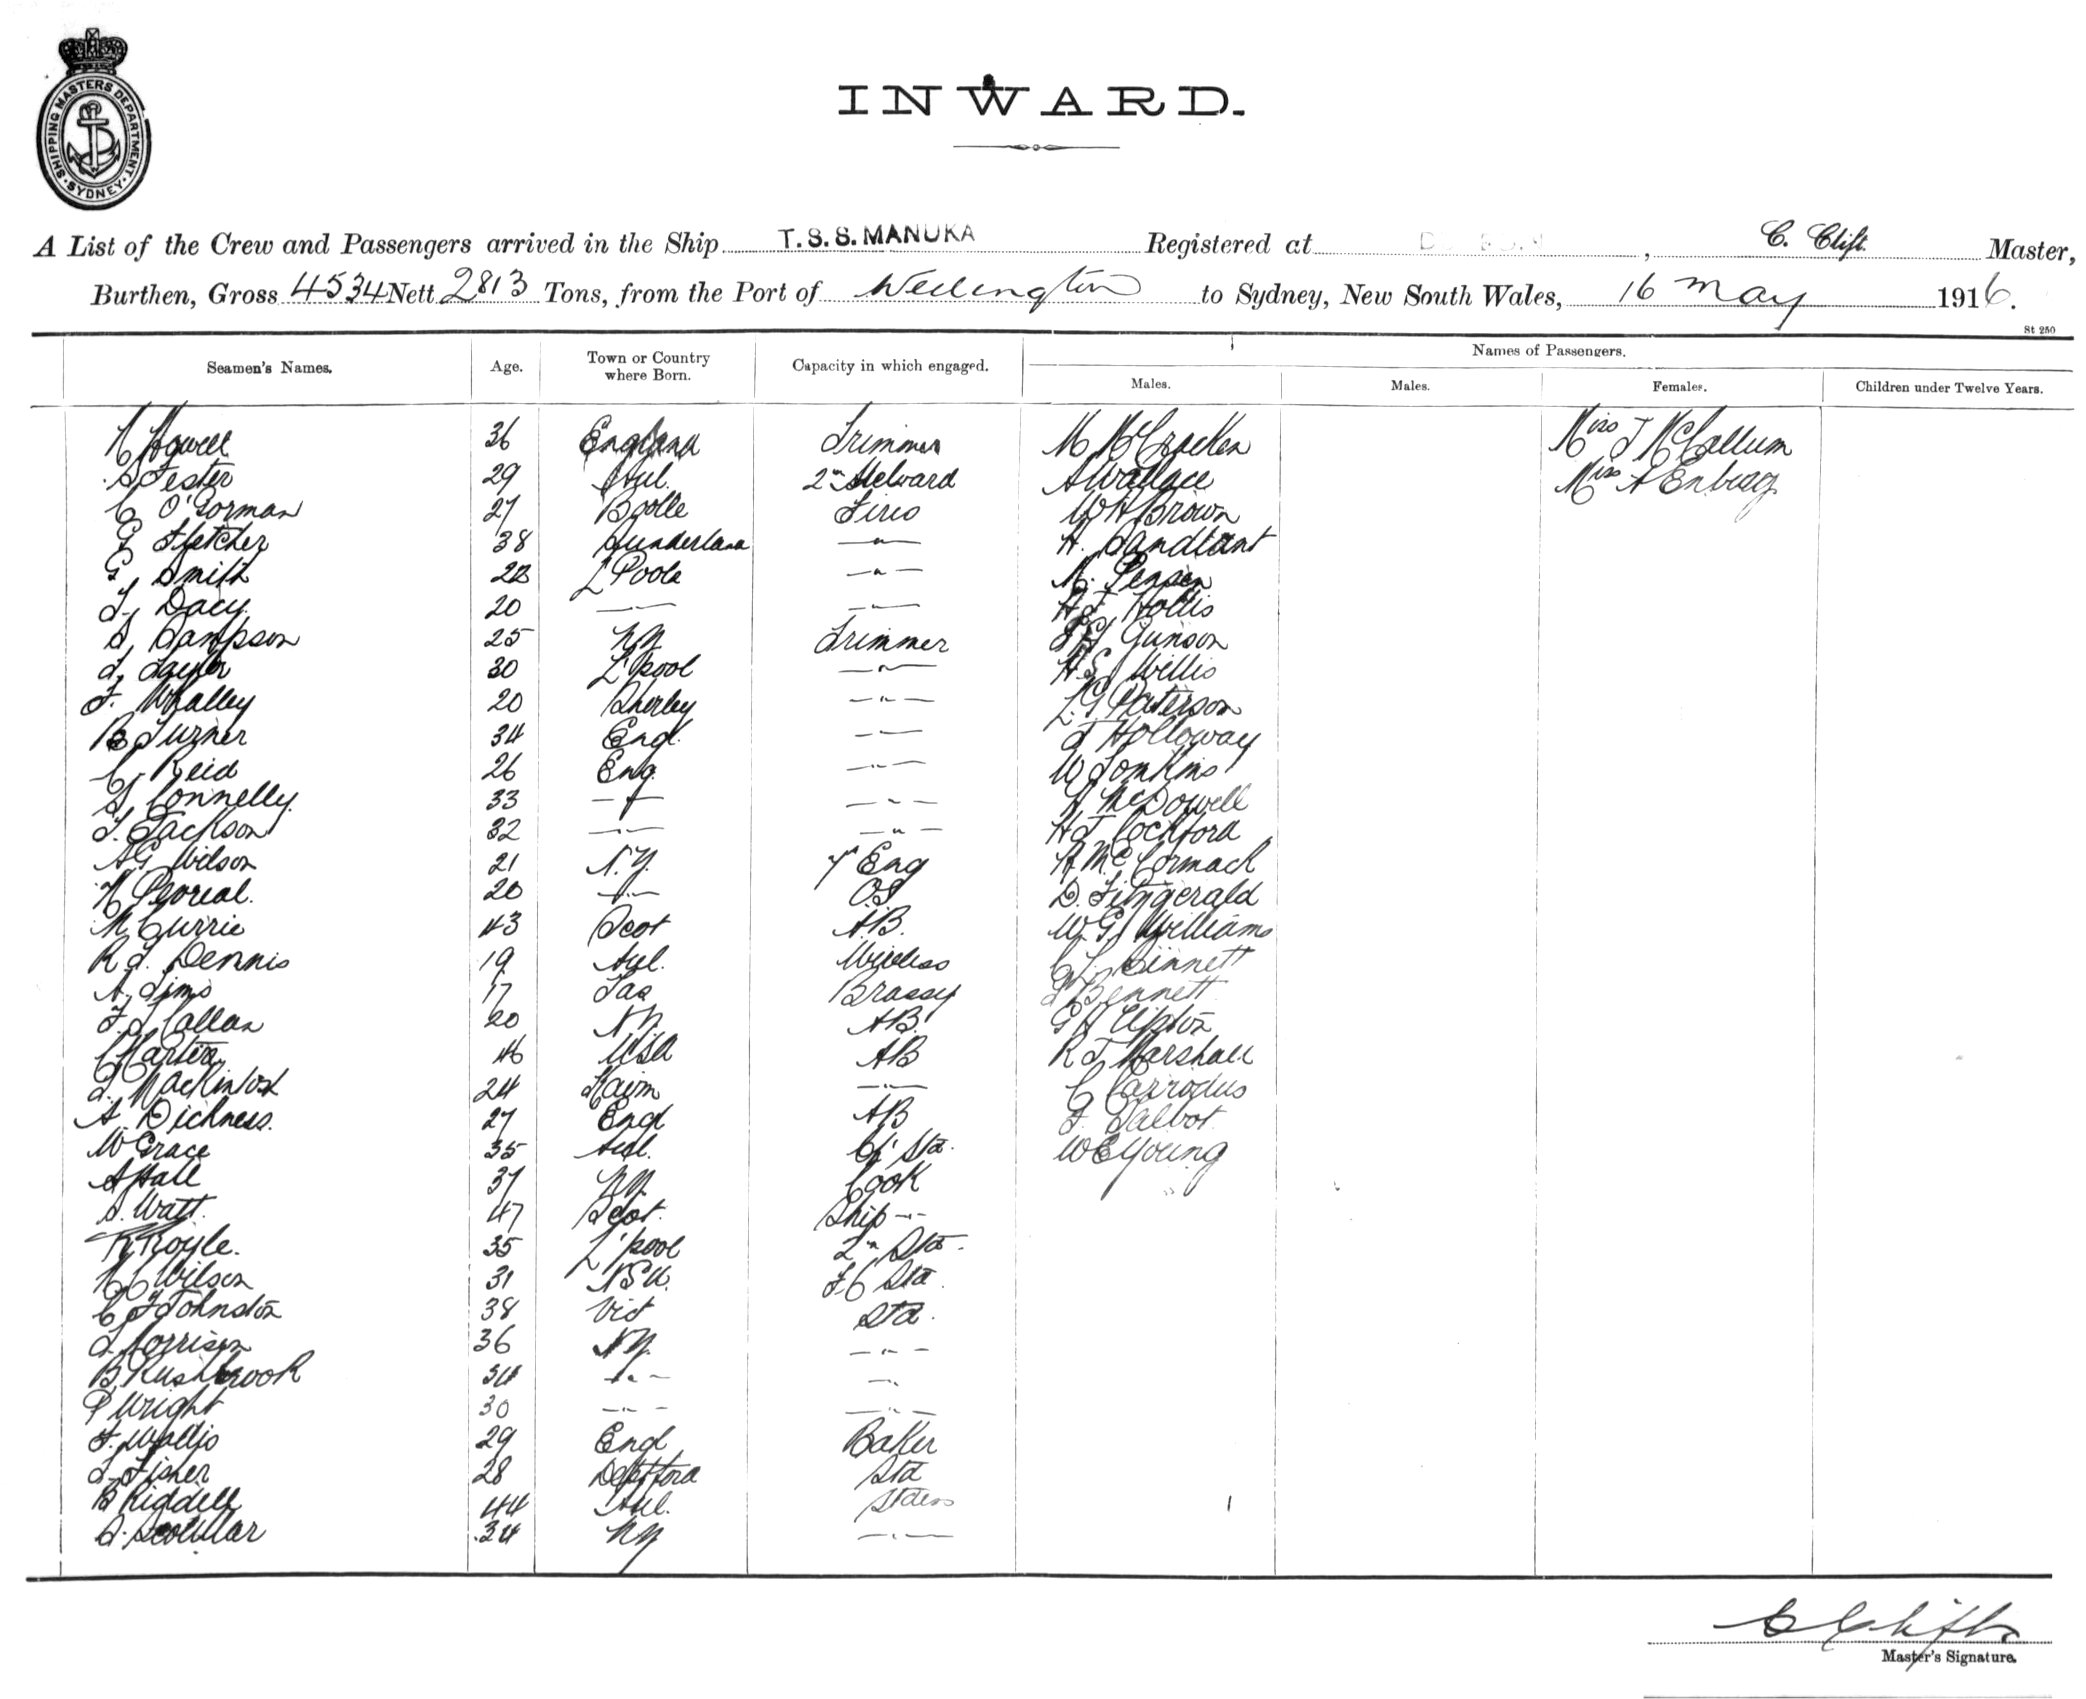 SHIPPING MASTERS DEPARTMENT · SYDNEY ·
INWARD.
A List of the Crew and Passengers arrived in the Ship T.S.S. MANUKA Registered at , C. Clift Master,
Burthen, Gross 4534 Nett 2813 Tons, from the Port of Wellington to Sydney, New South Wales, 16 May 1916.
St 250
Seamen's Names. Age. Town or Country where Born. Capacity in which engaged. Names of Passengers.
Males. Males. Females. Children under Twelve Years.
Howell 36 England Trimmer McCracken Miss J McCallum
S Fester 29 Aul. 2n Steward A Wallace Miss A Enberg
C O'Gorman 27 Bootle Fires W H Brown
G Fletcher 38 Sunderland —"— H. Sandtant
G Smith 22 L'Poole —"— Pensen
T. Dacy 20 —"— —"— H J Hollis
S, Sampson 25 NZ Trimmer Gunson
30 L'pool —"— H S Willis
F. Whalley 20 Sherley —"— L. G Paterson
B Turner 34 Engl. —"— J Holloway
C. Reid 26 Eng —"— W Tomkins
S Connelly 33 —"— —"— McDowell
T. Jackson 32 —"— —"— H J Cockford
A G Wilson 21 N.Z. Eng McCormack
20 —"— OS D. Fitzgerald
M Currie 43 Scot A.B. W G Williams
R J. Dennis 19 Aul. Wireless Binnett
A. Sims 17 Tas Brassy Bennett
F. J Callan 20 NZ AB. G H Upton
C Carter 46 USA AB R J Marshall
Mackintosh 24 —"— C Carrodus
A. Dickness. 27 Engl AB F. Talbot
W Grace 35 Aul. Cf Std. W E Young
A Hall 37 NZ Cook
S. Watt. 47 Scot. Ship —"—
R Royle. 35 L'pool 2n Std.
Wilson 31 NSW. F C Std.
C F Johnston 38 Vict Std.
Morrison 36 NZ —"—
B Rushbrook 34 —"— —"—
P Wright 30 —"— —"—
F. Wallis 29 Engl Baker
Fisher 28 Deptford Std
B Riddell 44 Aul. Stdess
Scoullar 34 NZ —"—
C Clift
Master's Signature.